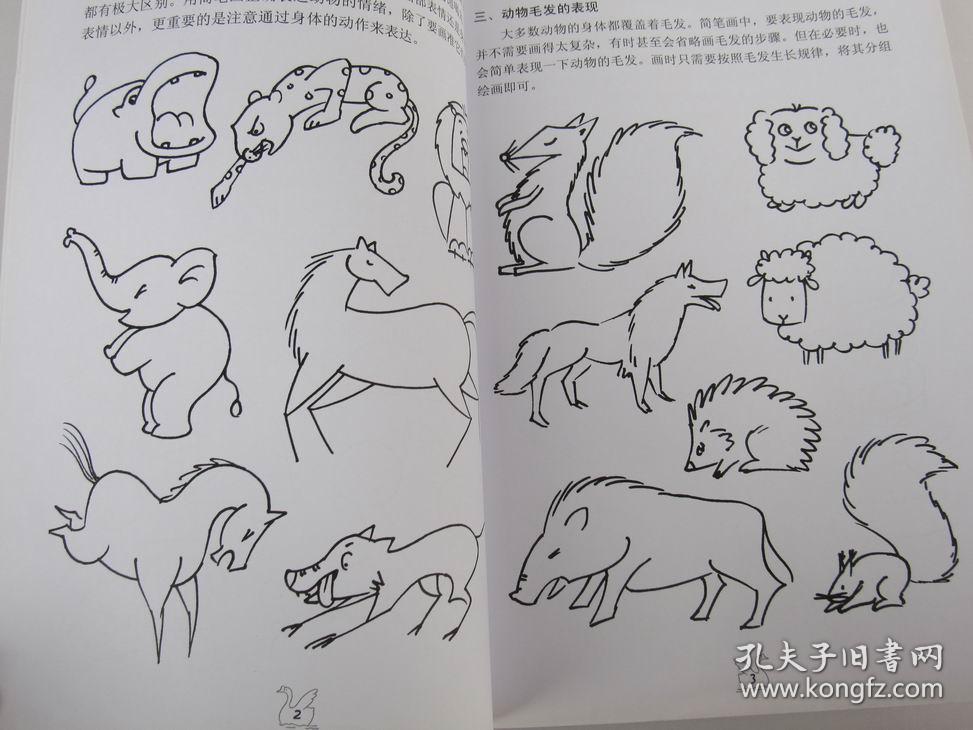 都有极大区别。用简笔画
表情以外，更重要的是注意通过身体的动作来表达。
三、动物毛发的表现
大多数动物的身体都覆盖着毛发。简笔画中，要表现动物的毛发，
并不需要画得太复杂，有时甚至会省略画毛发的步骤。但在必要时，也
会简单表现一下动物的毛发。画时只需要按照毛发生长规律，将其分组
绘画即可。
2
3
孔夫子旧書网
www.kongfz.com